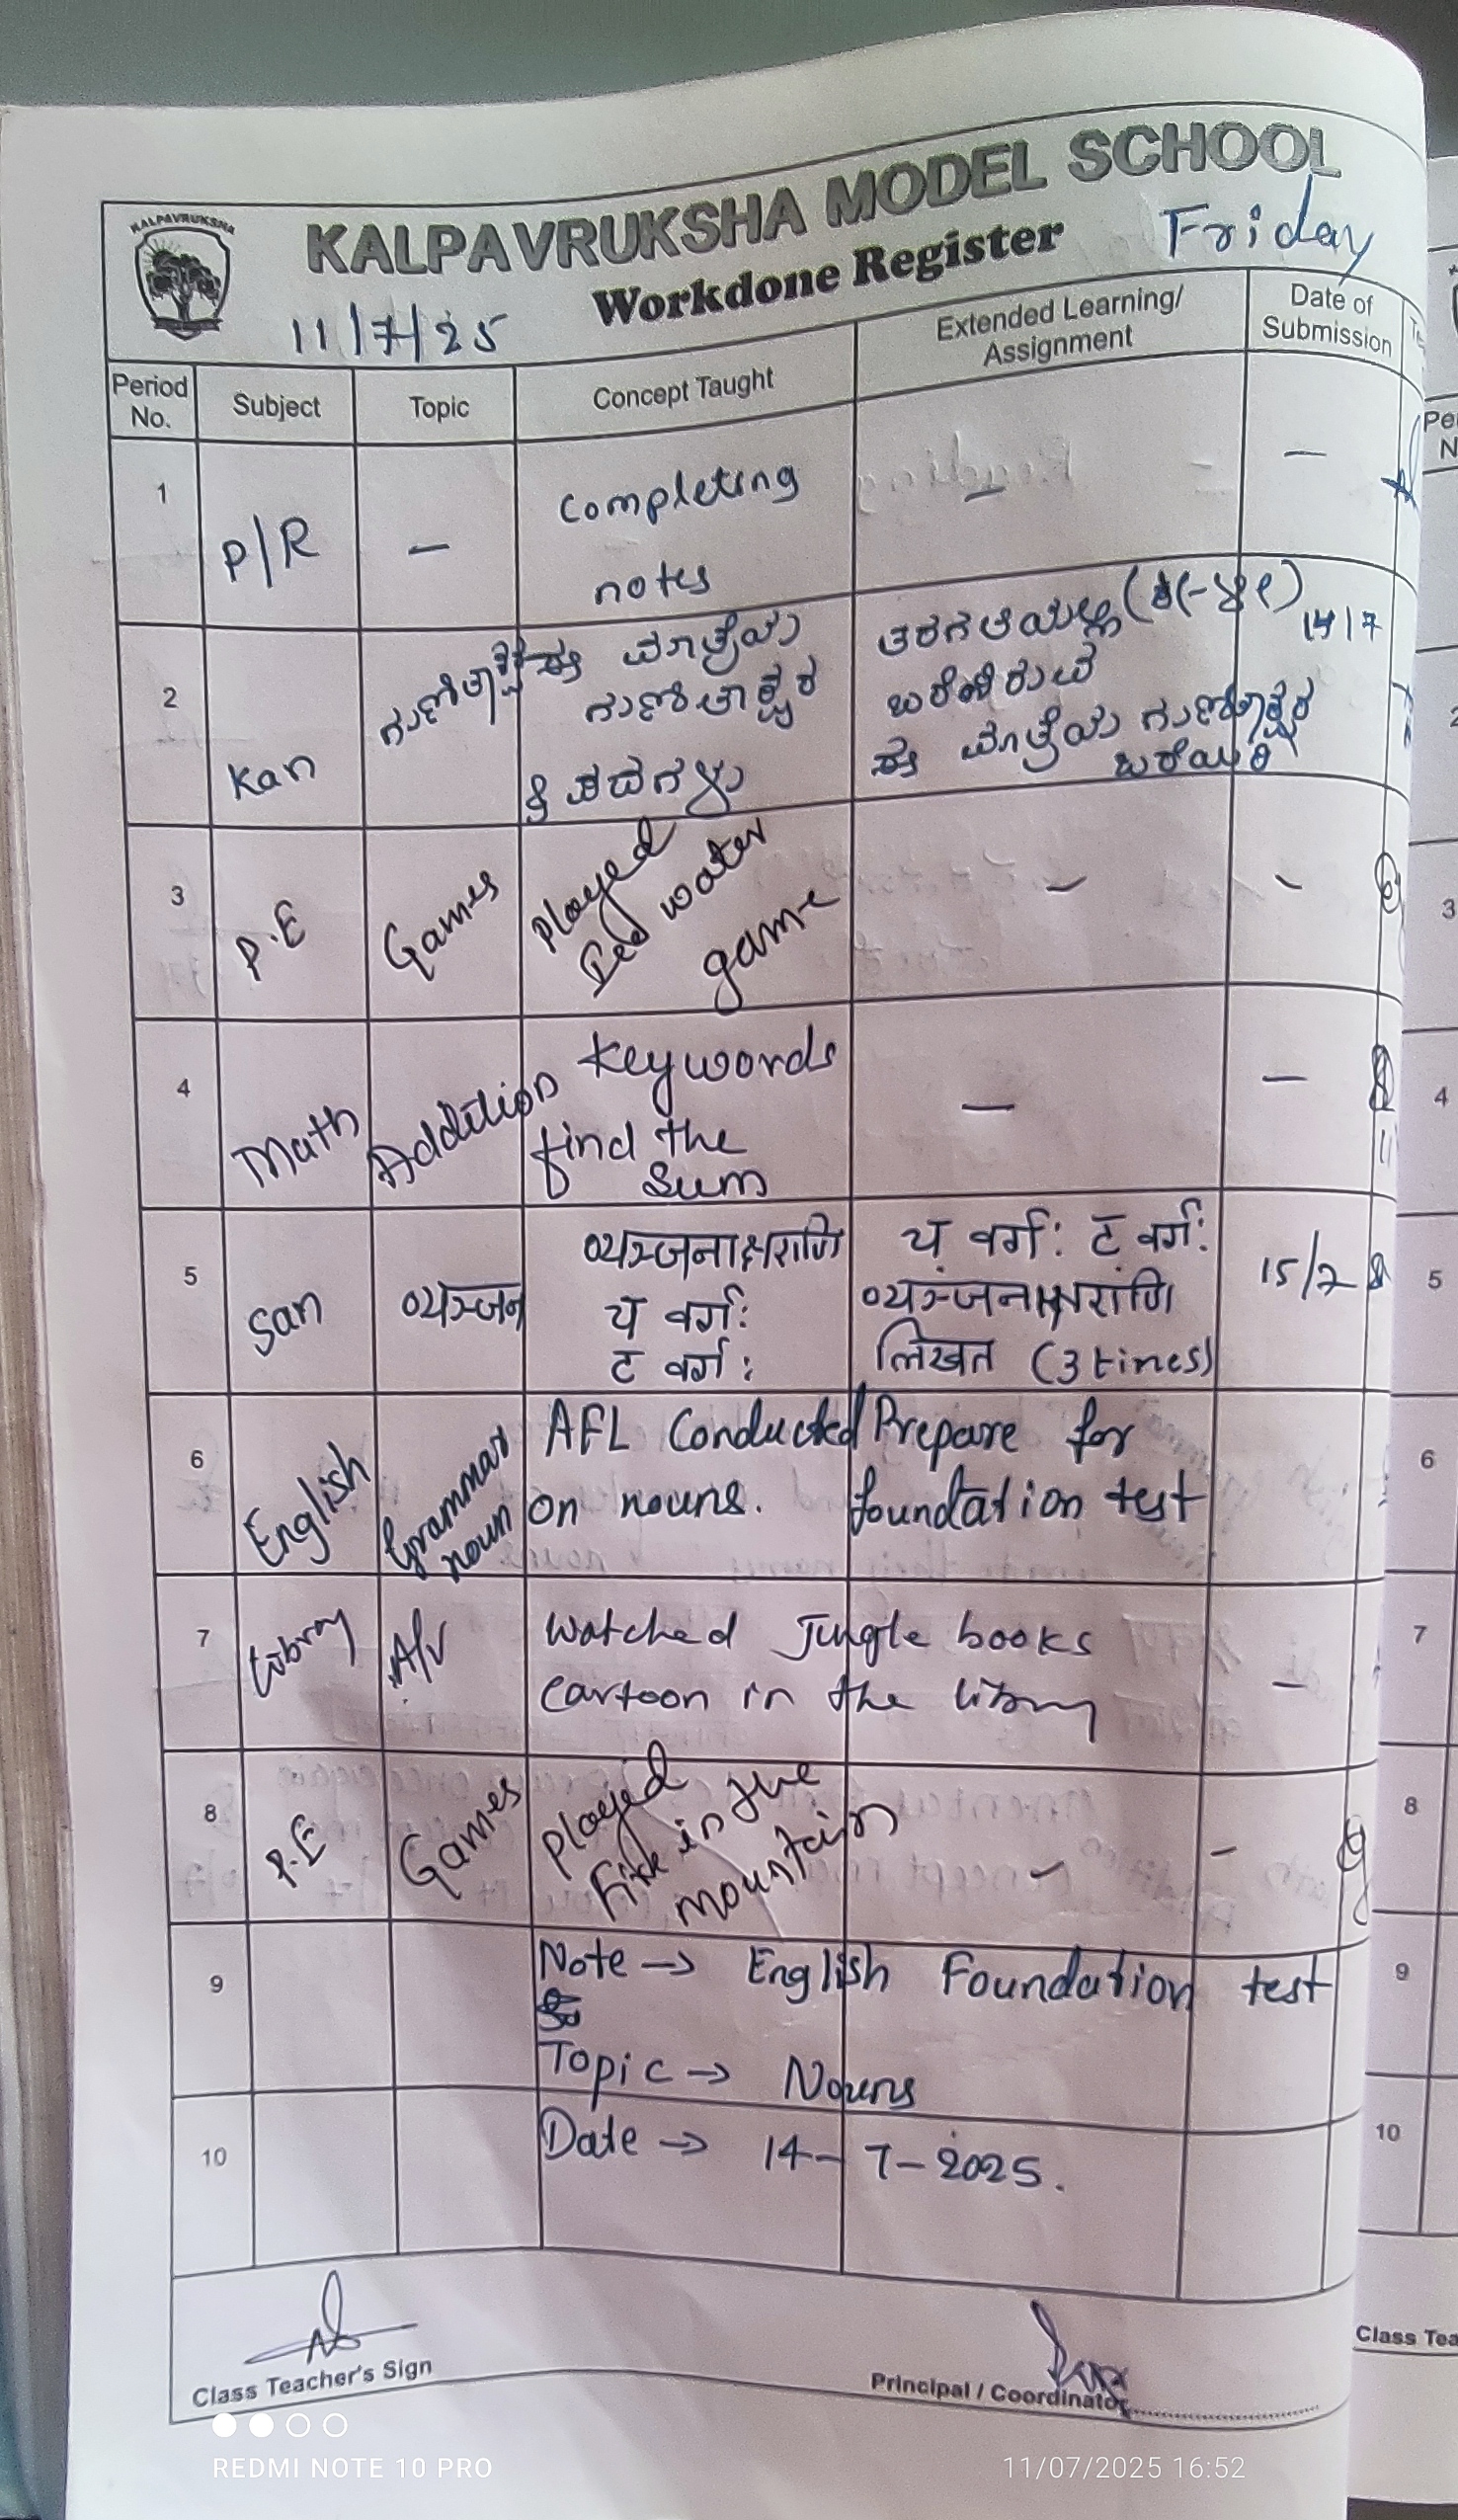 KALPAVRUKSHA
KALPAVRUKSHA MODEL SCHOOL
Workdone Register
Friday
11/7/25
Period No.
Subject
Topic
Concept Taught
Extended Learning/ Assignment
Date of Submission
1
P/R
—
completing
notes
—
—
2
Kan
ಗುಣಿತಾಕ್ಷರ
ಮಾತ್ರೆಯ
ಗುಣಿತಾಕ್ಷರ
& ಪದಗಳು
ತರಗತಿಯಲ್ಲಿ
ಬರೆಸಿರುವ
ಮಾತ್ರೆಯ ಗುಣಿತಾಕ್ಷರ
ಬರೆಯಿರಿ
14/7
3
P.E
Games
Played
water
game
—
—
4
Math
Addition
Keywords
find the
sum
—
—
5
San
व्यञ्जन
व्यञ्जनाक्षराणि
च वर्गः
ट वर्गः
च वर्गः ट वर्गः
व्यञ्जनाक्षराणि
लिखत (3 times)
15/7
6
English
Grammar
noun
AFL Conducted
on nouns.
Prepare for
foundation test
7
A/V
Watched Jungle books
cartoon in the
—
8
P.E
Games
Played
in the
mountain
—
—
9
Note → English Foundation test
Topic → Nouns
10
Date → 14-7-2025.
Class Teacher's Sign
Principal / Coordinator
REDMI NOTE 10 PRO
11/07/2025 16:52
Pe
N
2
3
4
5
6
7
8
9
10
Class Tea